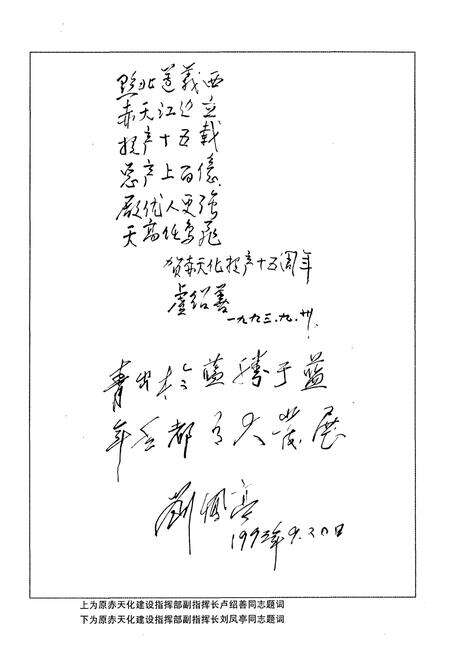 黔北遵義西
赤天江边立
投产十五載
总产上百億
厰优人更强
天高任鸟飛
贺赤天化投产十五周年
盧绍善
一九九三.九.廿.
青出於蓝勝于蓝
年年都有大發展
劉凤亭
1993年9.20日
上为原赤天化建设指挥部副指挥长卢绍善同志题词
下为原赤天化建设指挥部副指挥长刘凤亭同志题词